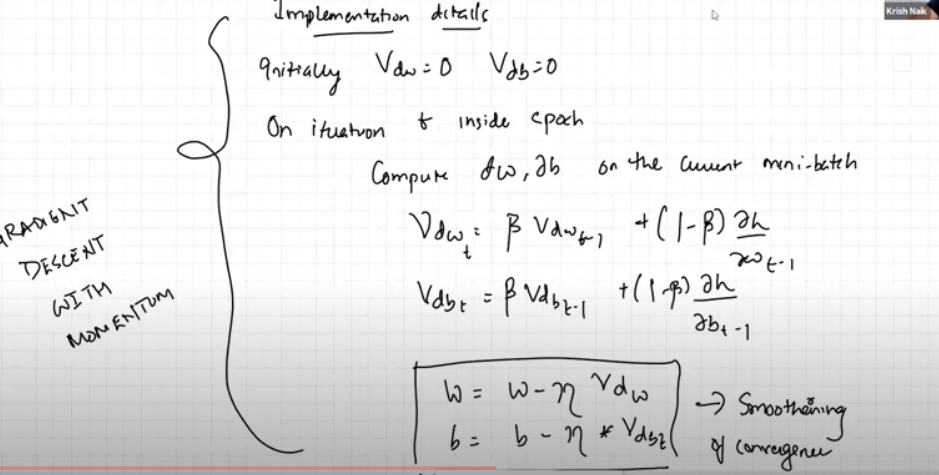 Krish Naik
Implementation details
Initially Vdw = 0 Vdb = 0
On ituation t inside epoch
Compute ∂w, ∂b on the current mini-batch
Vdw_t = β Vdw_t-1 + (1-β) ∂h/∂w_t-1
Vdb_t = β Vdb_t-1 + (1-β) ∂h/∂b_t-1
w = w - η Vdw
b = b - η * Vdb_t
→ Smoothening
of convergence
GRADIENT
DESCENT
WITH
MOMENTUM